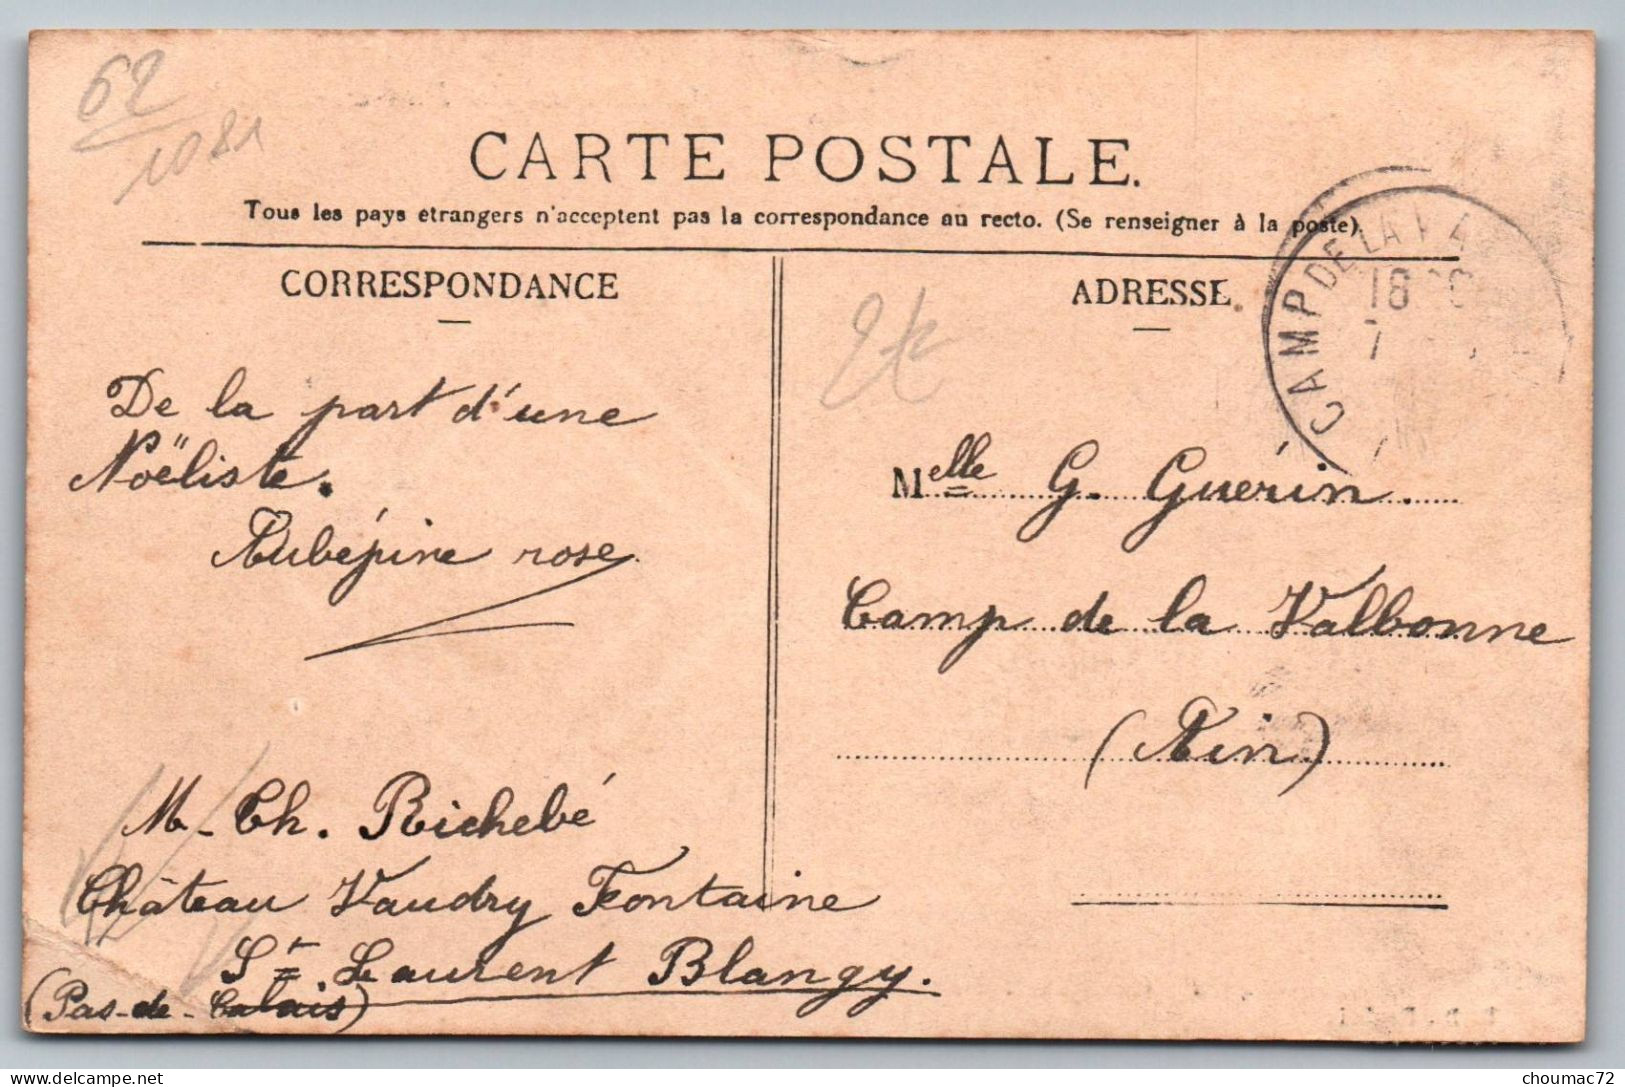 62
1081
CARTE POSTALE.
Tous les pays etrangers n'acceptent pas la correspondance au recto. (Se renseigner à la poste).
CORRESPONDANCE
De la part d'une
Noëliste.
Aubépine rose
M. Ch. Richebé
Château Vaudry Fontaine
St Laurent Blangy.
(Pas-de-Calais)
ADRESSE.
CAMP DE LA
18
7
Melle G. Guérin.
Camp de la Valbonne
(Ain)
choumac72